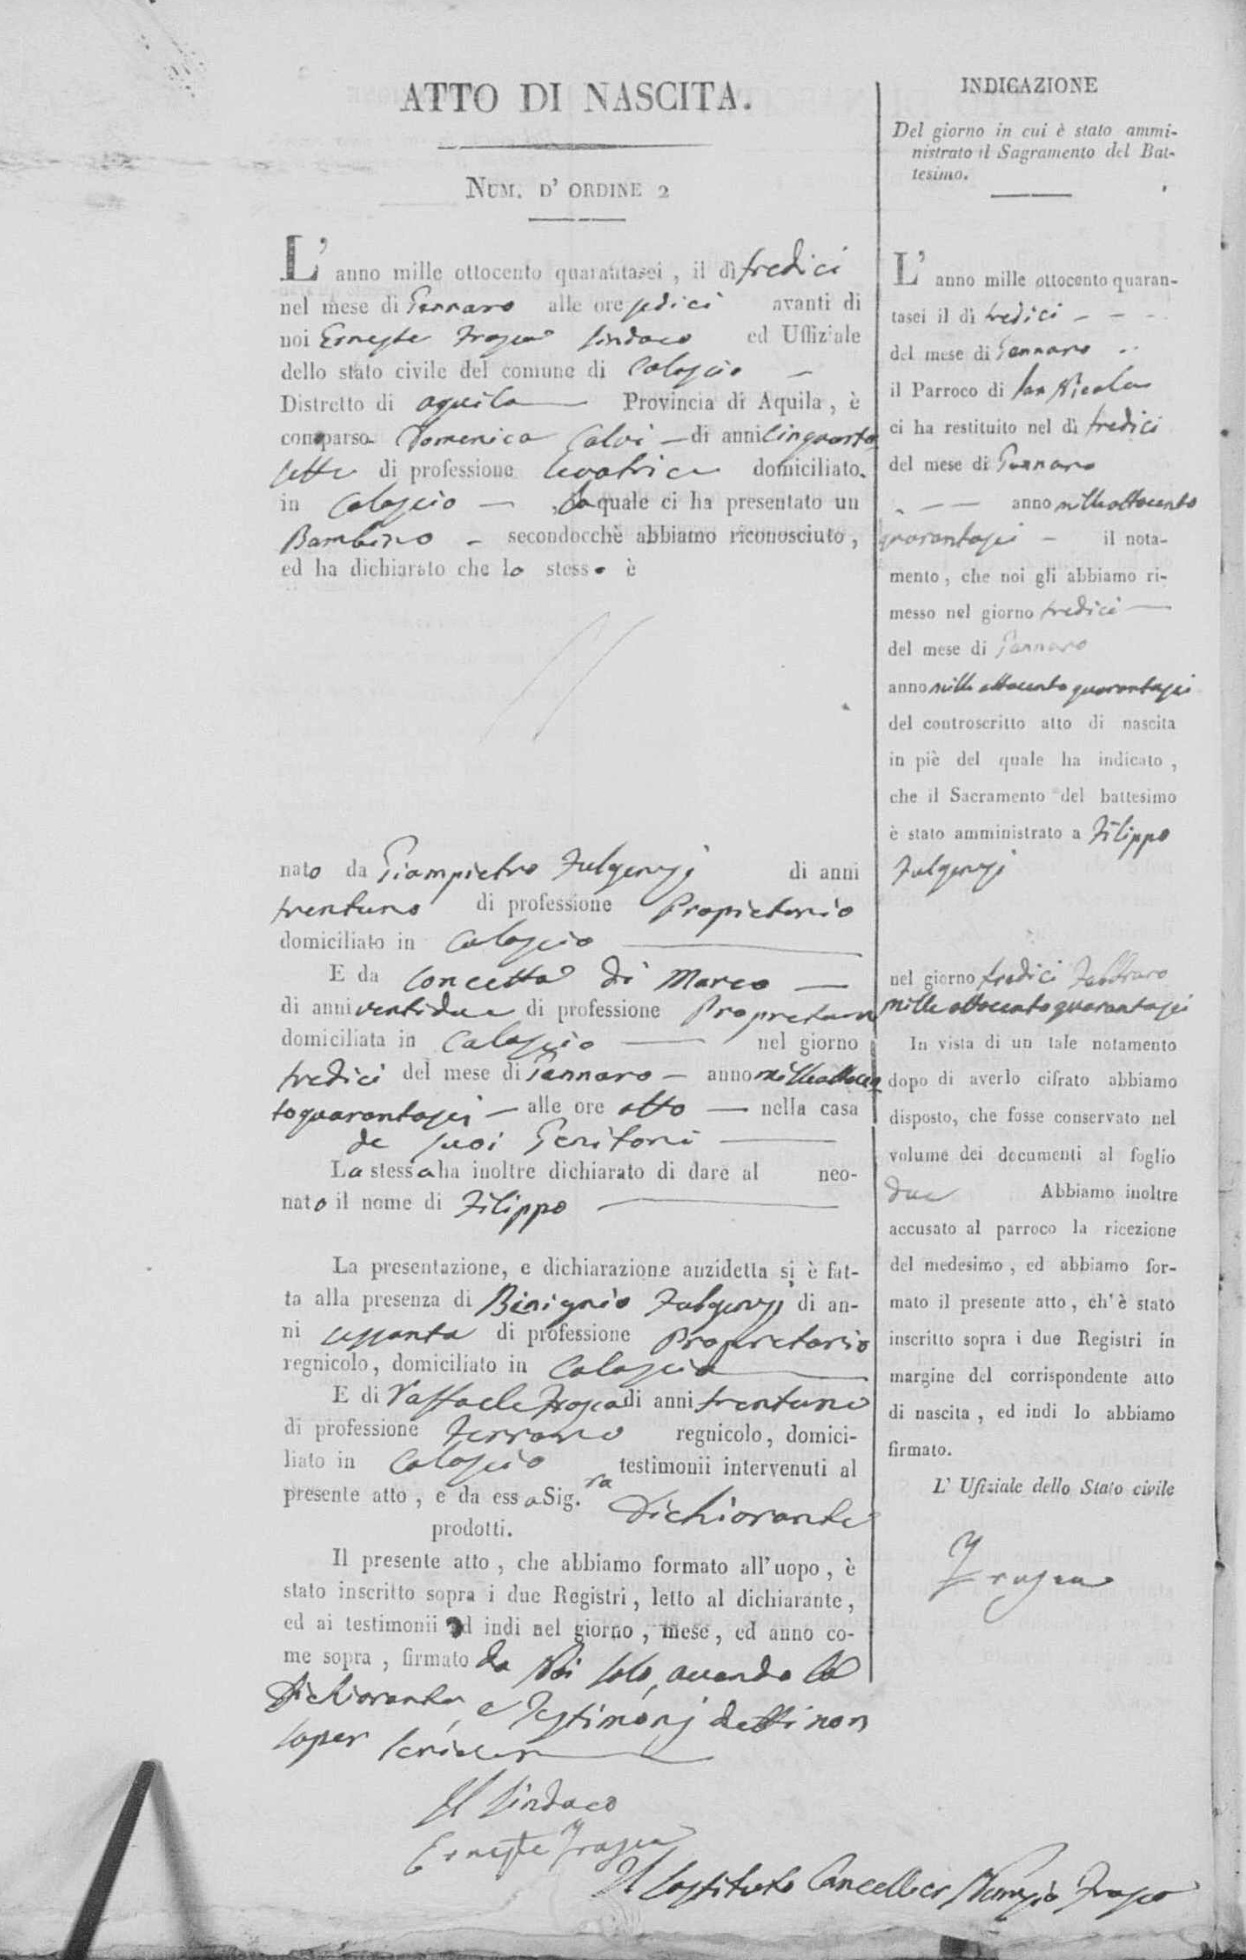 ATTO DI NASCITA.
NUM. D' ORDINE 2
L' anno mille ottocento quarantasei, il dì tredici
nel mese di Gennaro alle ore sedici avanti di
noi Erneste Frasca Sindaco ed Uffiziale
dello stato civile del comune di Calascio
Distretto di Aquila Provincia di Aquila, è
comparsa Domenica Calvi di anni cinquanta
sette di professione Levatrice domiciliato
in Calascio, la quale ci ha presentato un
Bambino secondocchè abbiamo riconosciuto,
ed ha dichiarato che lo stesso è
nato da Giampietro Fulgenzj di anni
trentuno di professione Proprietario
domiciliato in Calascio
E da Concetta di Marco
di anni ventidue di professione Proprietaria
domiciliata in Calascio nel giorno
tredici del mese di Gennaro anno milleottocen
toquarantasei alle ore otto nella casa
de suoi Genitori
La stessa ha inoltre dichiarato di dare al neo-
nato il nome di Filippo
La presentazione, e dichiarazione anzidetta si è fat-
ta alla presenza di Benignio Fulgenzj di an-
ni sessanta di professione Proprietario
regnicolo, domiciliato in Calascio
E di Raffaele Frasca di anni trentuno
di professione Ferraro regnicolo, domici-
liato in Calascio testimonii intervenuti al
presente atto, e da essa Sig.ra Dichiarante
prodotti.
Il presente atto, che abbiamo formato all'uopo, è
stato inscritto sopra i due Registri, letto al dichiarante,
ed ai testimonii ed indi nel giorno, mese, ed anno co-
me sopra, firmato da Noi solo, avendo la
Dichiarante, e Testimonj detti non
saper scrivere
Il Sindaco
Erneste Frasca
Il Sostituto Cancelliere Nunzio Frasca
INDICAZIONE
Del giorno in cui è stato ammi-
nistrato il Sagramento del Bat-
tesimo.
L' anno mille ottocento quaran-
tasei il dì tredici
del mese di Gennaro
il Parroco di San Nicola
ci ha restituito nel dì tredici
del mese di Gennaro
anno milleottocento
quarantasei il nota-
mento, che noi gli abbiamo ri-
messo nel giorno tredici
del mese di Gennaro
anno mille ottocento quarantasei
del controscritto atto di nascita
in piè del quale ha indicato,
che il Sacramento del battesimo
è stato amministrato a Filippo
Fulgenzj
nel giorno tredici Febbraro
mille ottocento quarantasei
In vista di un tale notamento
dopo di averlo cifrato abbiamo
disposto, che fosse conservato nel
volume dei documenti al foglio
due Abbiamo inoltre
accusato al parroco la ricezione
del medesimo, ed abbiamo for-
mato il presente atto, ch'è stato
inscritto sopra i due Registri in
margine del corrispondente atto
di nascita, ed indi lo abbiamo
firmato.
L' Ufiziale dello Stato civile
Frasca